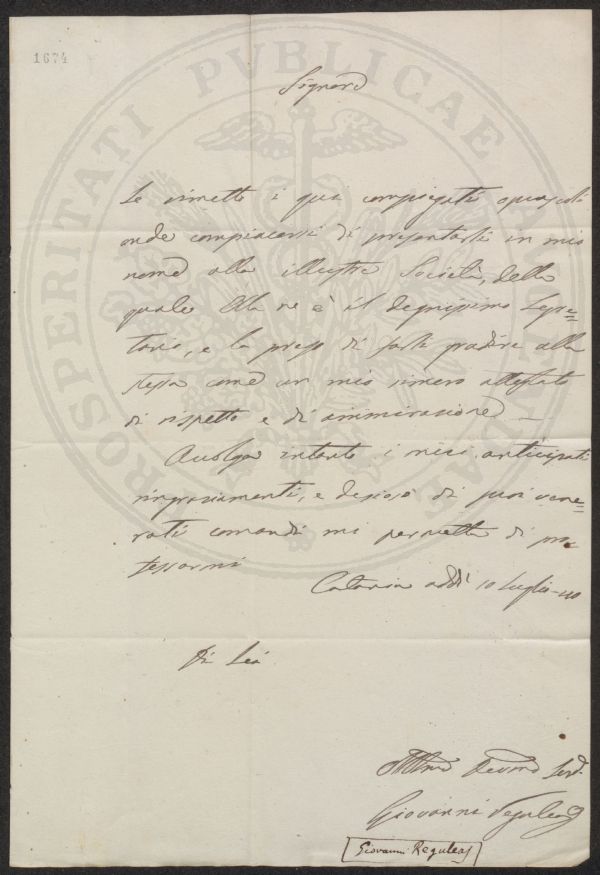 1674
PROSPERITATI PUBLICAE AUGENDAE
Signore
Le rimetto i qui compiegati opuscoli
onde compiacersi di presentarli in mio
nome alla illustre Società, della
quale Ella ne è il degnissimo Segre=
tario, e la prego di farli gradire alla
stessa come un mio sincero attestato
di rispetto e di ammirazione
Accolga intanto i miei anticipati
ringraziamenti, e desioso di suoi vene=
rati comandi mi permetta di pro
tessarmi
Catania addì 10 Luglio
Di Lei
Devmo Serv.
Giovanni Reguleas
Giovanni Reguleas